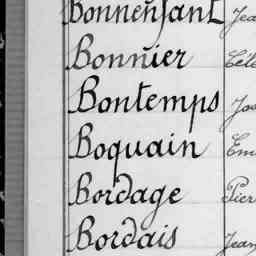 Bonnenfant Jea
Bonnier
Bontemps Jos
Boquain Em
Bordage Pier
Bordais Jean